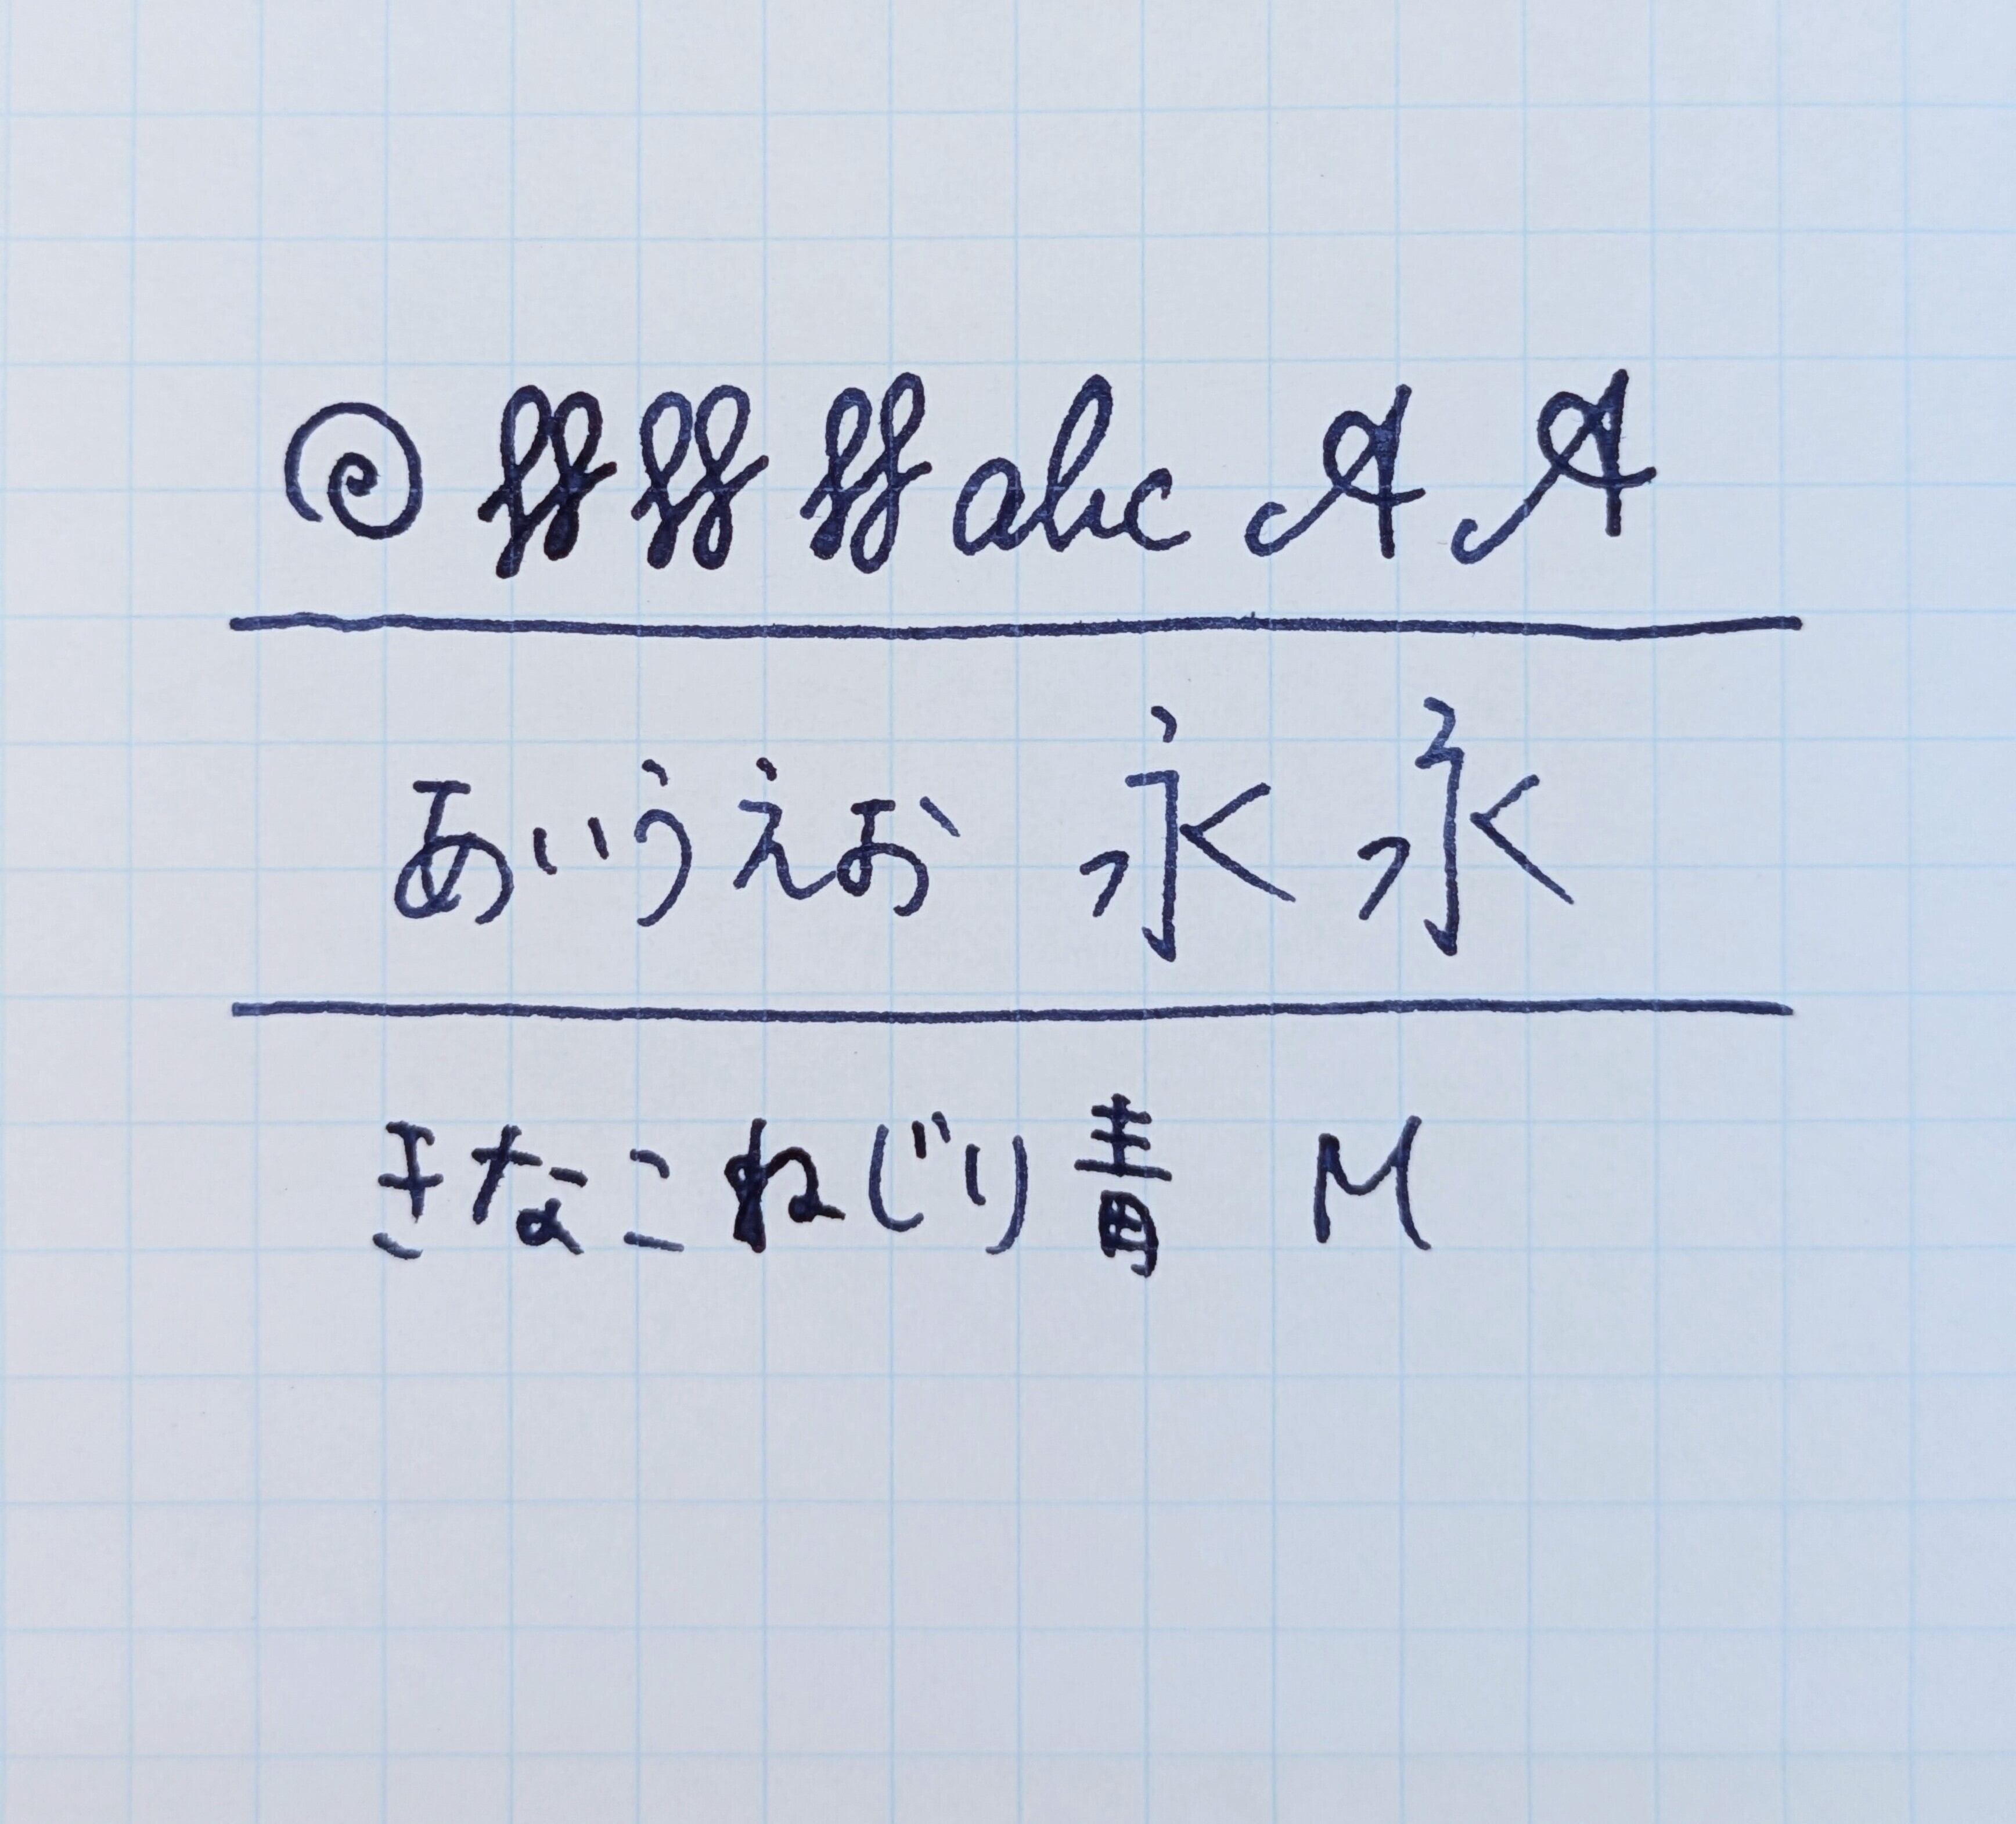 abc A A
あいうえお 永 永
きなこねじり青 M